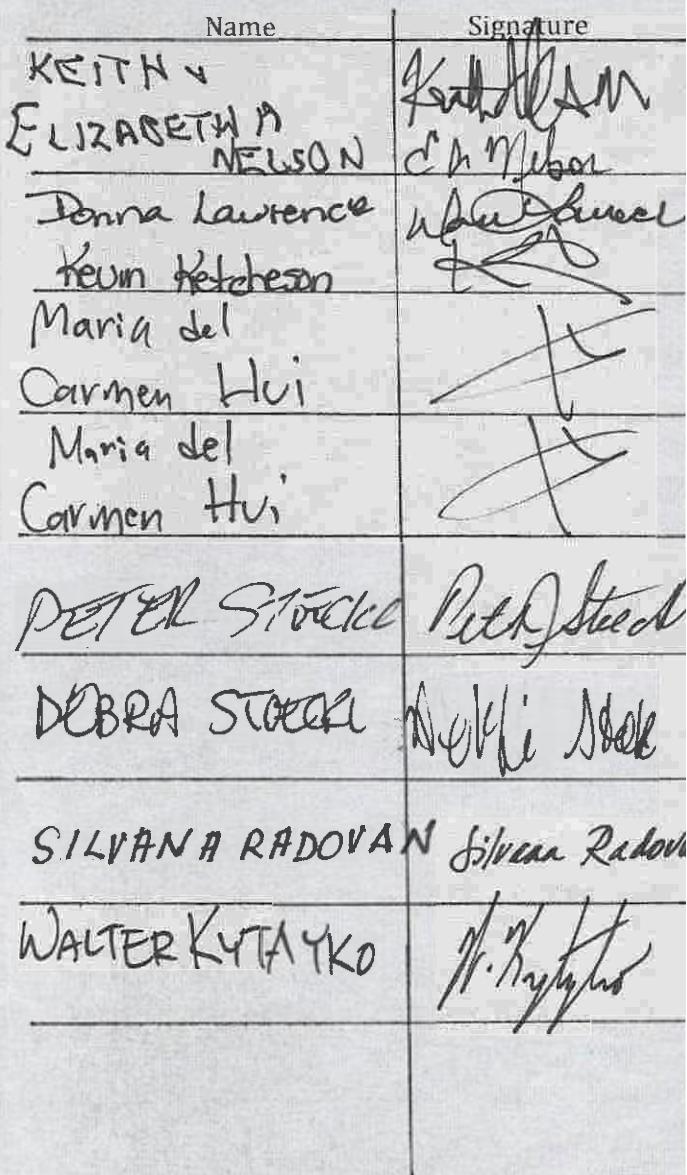 Name Signature
KEITH &
ELIZABETH A
NELSON
E A Nelson
Donna Lawrence
Kevin Ketcheson
Maria del
Carmen Hui
Maria del
Carmen Hui
PETER STOECKL
DEBRA STOECKL
SILVANA RADOVAN Silvana Radova
WALTER KYTAYKO W. Kytayko